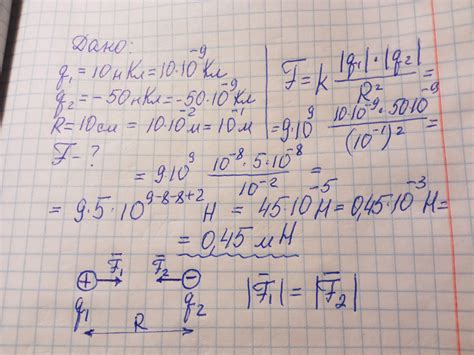 Дано:
q₁ = 10 нКл = 10·10⁻⁹ Кл
q₂ = −50 нКл = −50·10⁻⁹ Кл
R = 10 см = 10·10⁻² м = 10⁻¹ м
F − ?
F = k |q₁|·|q₂| / R² =
= 9·10⁹ 10·10⁻⁹·50·10⁻⁹ / (10⁻¹)² =
= 9·10⁹ 10⁻⁸·5·10⁻⁸ / 10⁻² =
= 9·5·10⁹⁻⁸⁻⁸⁺² Н = 45·10⁻⁵ Н = 0,45·10⁻³ Н =
= 0,45 мН
+ F̄₁ F̄₂ −
q₁ q₂
R
|F̄₁| = |F̄₂|